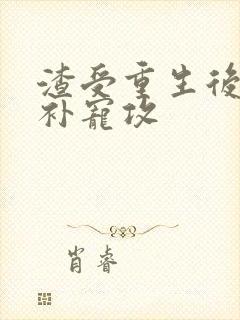 渣受重生後
补寵攻
肖睿